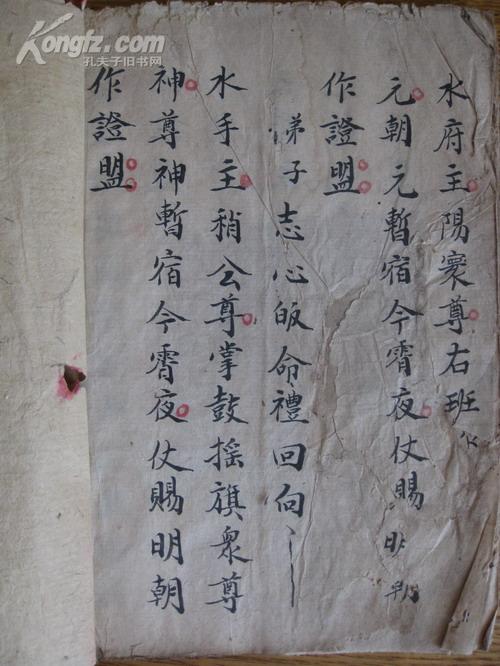 水府主陽衆尊右班
元朝元暫宿今霄夜仗賜明朝
作證盟
弟子志心皈命禮回向
水手主稍公尊掌鼓摇旗衆尊
神尊神暫宿今霄夜仗賜明朝
作證盟
Kongfz.com
孔夫子旧书网